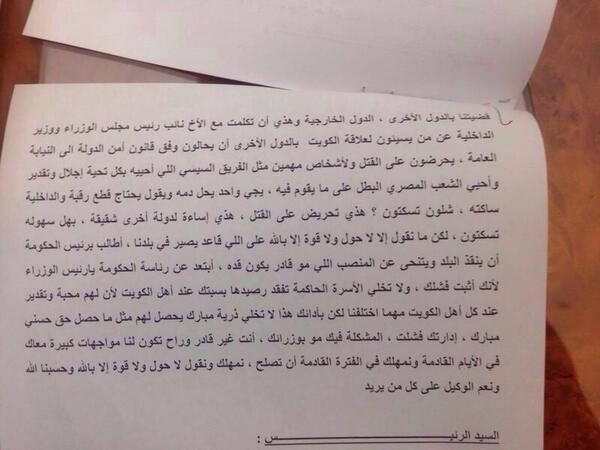 قضيتنا بالدول الأخرى ، الدول الخارجية وهذي أن تكلمت مع الأخ نائب رئيس مجلس الوزراء ووزير
الداخلية عن من يسيئون لعلاقة الكويت بالدول الأخرى أن يحالون وفق قانون أمن الدولة الى النيابة
العامة ، يحرضون على القتل ولأشخاص مهمين مثل الفريق السيسي اللي أحييه بكل تحية إجلال وتقدير
وأحيي الشعب المصري البطل على ما يقوم فيه ، يجي واحد يحل دمه ويقول يحتاج قطع رقبة والداخلية
ساكته ، شلون تسكتون ؟ هذي تحريض على القتل ، هذي إساءة لدولة أخرى شقيقة ، بهل سهوله
تسكتون ، لكن ما نقول إلا لا حول ولا قوة إلا بالله على اللي قاعد يصير في بلدنا ، أطالب برئيس الحكومة
أن ينقذ البلد ويتنحى عن المنصب اللي مو قادر يكون قده ، أبتعد عن رئاسة الحكومة يارئيس الوزراء
لأنك أثبت فشلك ، ولا تخلي الأسرة الحاكمة تفقد رصيدها بسبتك عند أهل الكويت لأن لهم محبة وتقدير
عند كل أهل الكويت مهما اختلفنا لكن بأدائك هذا لا تخلي ذرية مبارك يحصل لهم مثل ما حصل حق حسني
مبارك ، إدارتك فشلت ، المشكلة فيك مو بوزرائك ، أنت غير قادر وراح تكون لنا مواجهات كبيرة معاك
في الأيام القادمة ونمهلك في الفترة القادمة أن تصلح ، نمهلك ونقول لا حول ولا قوة إلا بالله وحسبنا الله
ونعم الوكيل على كل من يريد
السيد الرئيــــــــــــــــــــــــــــــــــس :